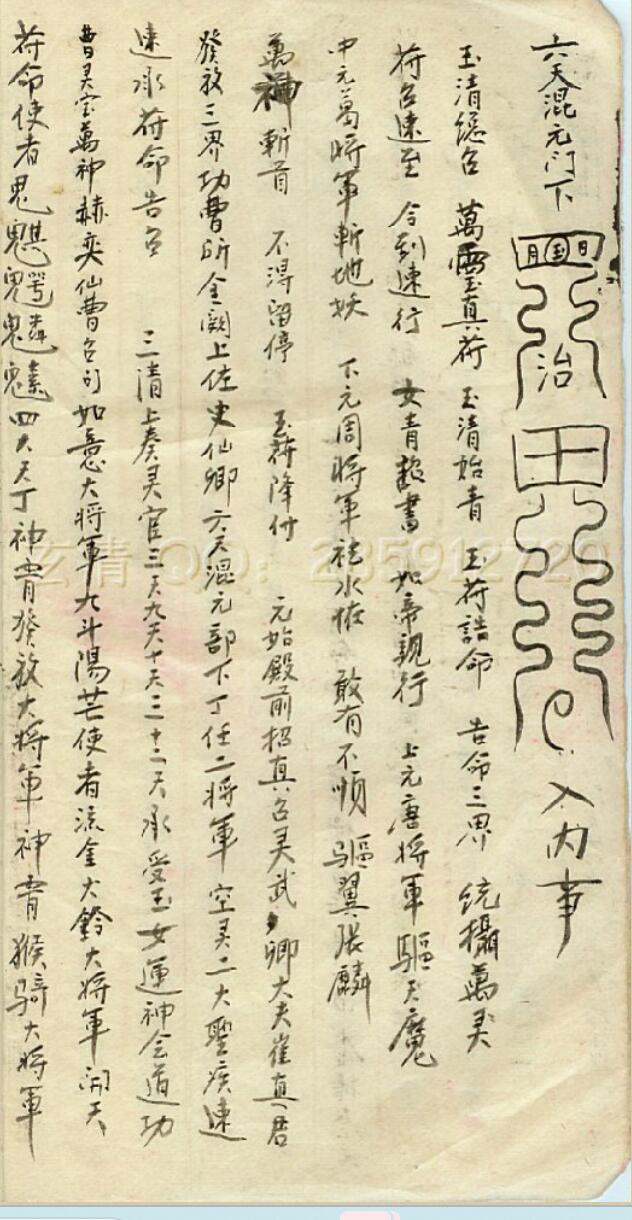 六天混元门下 日 国 月 治 王 入内事
玉清总召 萬灵玉真符 玉清始青 玉符誥命 告命三界 统攝萬灵
符召速至 令到速行 女青詔書 如帝親行 上元唐將軍驅天魔
中元葛將軍斬地妖 下元周將軍 水怪 敢有不順 驅翼張麟
萬神斬首 不得留停 玉符降付 元始殿前招真召灵武卿大夫崔真君
發放三界功曹所金闕上佐史仙卿六天混元部下丁任二將軍空灵二大聖疾速
速承符命告召 三清上奏灵官三天九天十天三十二天承受玉女運神会道功
曹灵宝萬神赫奕仙曹召 如意大將軍九斗陽芒使者流金大鈴大將軍 天
符命使者 四大天丁神霄發放大將軍神霄猴騎大將軍
玄清QQ：235912729